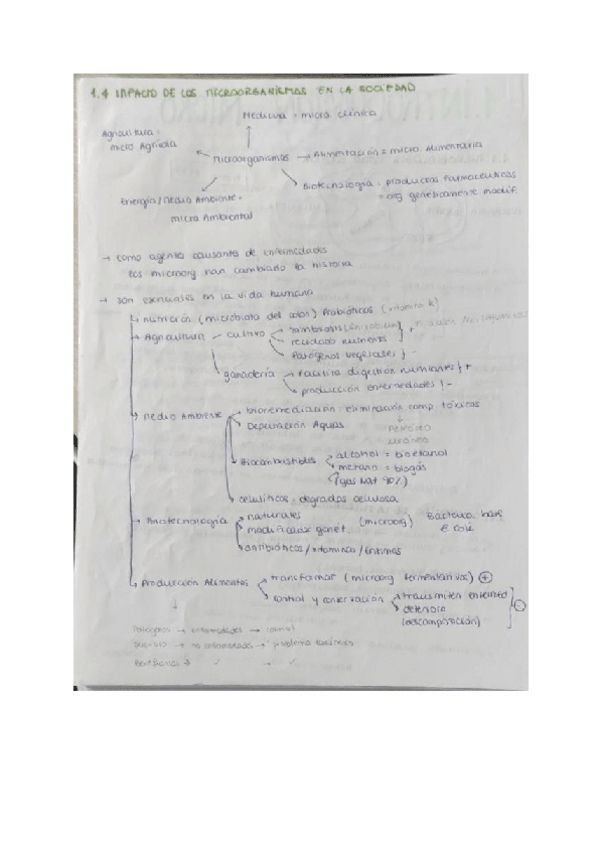 1.4 IMPACTO DE LOS MICROORGANISMOS EN LA SOCIEDAD
Medicina = micro. clínica
Agricultura =
micro Agrícola
microorganismos → Alimentación = micro. Alimentaria
Biotecnología = productos farmaceúticos
= org genéticamente modif.
Energía/Medio Ambiente =
micro Ambiental
→ como agentes causantes de enfermedades
los microorg han cambiado la historia
→ son esenciales en la vida humana
nutrición (microbiota del colon) Probióticos (vitamina K)
Agricultura - cultivo
simbiontes
reciclado nutrients
Patógenos vegetales } -
ganadería → Facilita digestión rumiantes } +
producción enfermedades } -
Medio Ambiente
biorremediación: eliminación comp. tóxicos
Depuración Aguas
Petróleo
Biocombustibles
alcohol = bioetanol
metano = biogás
(gas Nat 90%)
celulíticos: degradados celulosa
Biotecnología
naturales
modificados genet. (microorg)
E. coli
antibióticos/vitaminas/enzimas
Producción Alimentos
transformar (microorg fermentativos) (+)
control y conservación
transmiten enfermed
deterioro
(descomposición)
(-)
Patógenos → enfermedades → control
→ no enfermedades → problema económico
Beneficiosos →